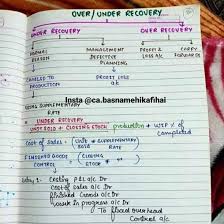 OVER/UNDER RECOVERY
UNDER RECOVERY OVER RECOVERY
NORMAL REASON MANAGEMENT DEFECTIVE PLANNING PROFIT & LOSS A/C CARRY FORWARD
CHARGED TO PRODUCTION PROFIT LOSS A/C
USING SUPPLEMENTARY RATE
Insta @ca.basnamehikafihai
* UNDER RECOVERY
UNIT SOLD + CLOSING STOCK production + WIP × % of completed
COST OF SALES = (Unit sold × SUPPLEMENTARY RATE)
FINISHED GOODS = (CLOSING STOCK × "
Costing P&L a/c Dr
Cost of sales a/c Dr
finished Goods a/c Dr
Work in progress a/c Dr
To factory overhead Control a/c